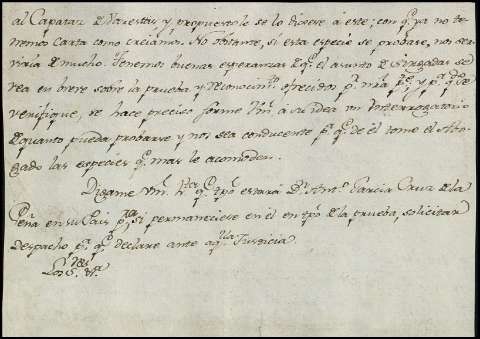 al Capataz Marentes y propuestole se lo diesse á este; con q.e ya no te-
nemos Carta como creiamos. No obstante, si esta especie se probase, nos ser-
viria de mucho. Tenemos buenas esperanzas de q.e el asunto de se
vea en breve sobre la prueba y reconocim.to ofrecidos p.r nrã p.te, y p.a q.do se
verifique, se hace preciso forme Vm. á su idea un Interrogatorio
de quanto pueda probarse y nos sea conducente p.a q.e de él tome el Abo-
gado las especies q.e mas le acomoden.
Digame Vm. h.ta q.e tpo estará D.n Ant.o Garcia Cruz de la
Peña en su Pais p.a si permaneciese en él en tpo de la prueba, solicitar
despacho p.a q.e declare ante aq.lla Justicia.